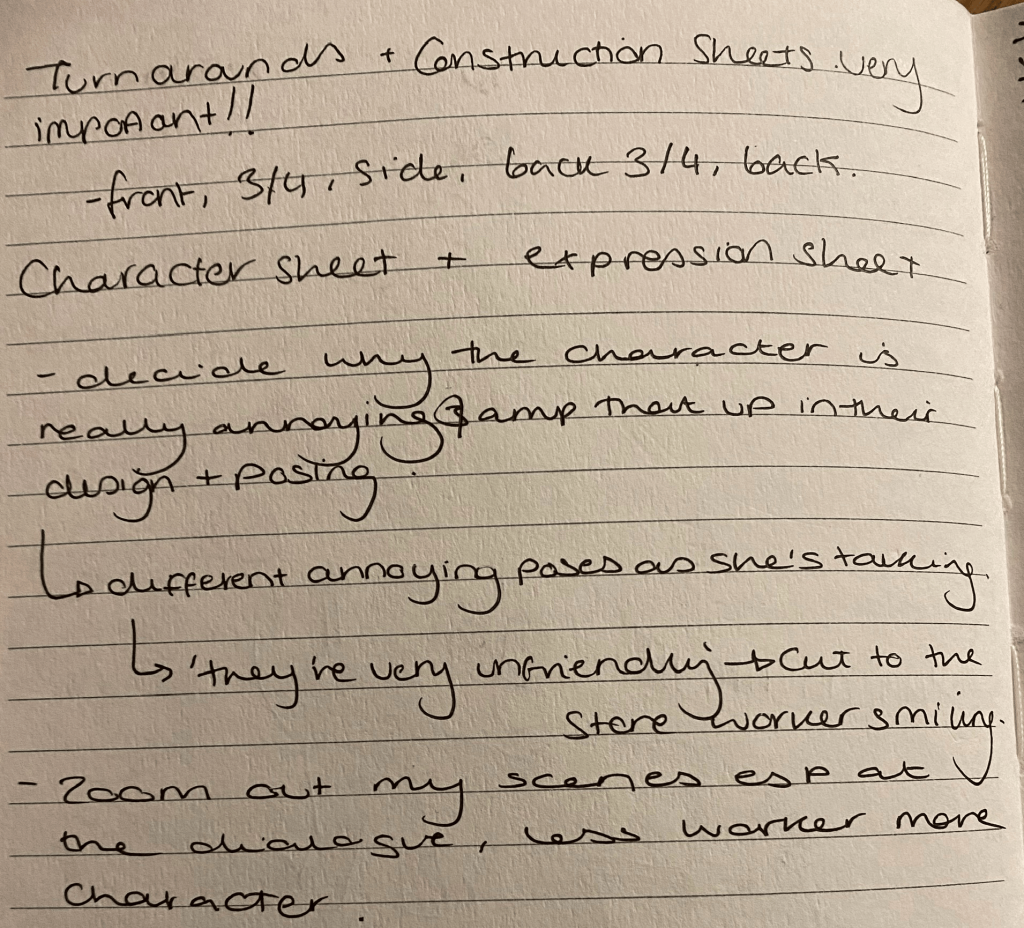 Turnarounds + Construction Sheets very
important!!
-front, 3/4, side, back 3/4, back.
Character sheet + expression sheet
- decide why the character is
really annoying & amp that up in their
design + posing.
↳ different annoying poses as she's talking.
↳ 'they're very unfriendly → cut to the
store worker smiling.
- Zoom out my scenes esp at
the dialogue, less worker more
character.